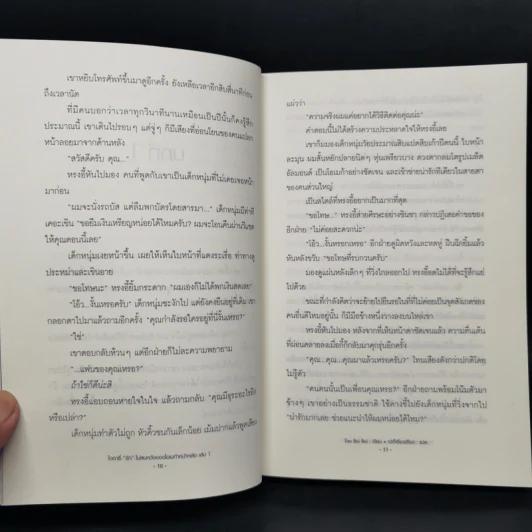 เขาหยิบโทรศัพท์ขึ้นมาดูอีกครั้ง ยังเหลือเวลาอีกสิบสี่นาทีก่อน
ถึงเวลานัด
ที่มีคนบอกว่าเวลาทุกวินาทีนานเหมือนเป็นปีนั้นก็คงรู้สึก
ประมาณนี้ เขาเดินไปรอบๆ แต่จู่ๆ ก็มีเสียงที่อ่อนโยนของคนแปลก
หน้าลอยมาจากด้านหลัง
"สวัสดีครับ คุณ..."
ทรงอี้หันไปมอง คนที่พูดกับเขาเป็นเด็กหนุ่มที่ไม่เคยเจอหน้า
มาก่อน
"ผมจะนั่งรถบัส แต่ลืมพกบัตรโดยสารมา..." เด็กหนุ่มมีท่าที
เคอะเขิน "ขอยืมเงินเหรียญหน่อยได้ไหมครับ? ผมจะโอนคืนผ่านวีแชต
ให้คุณตอนนี้เลย"
เด็กหนุ่มเงยหน้าขึ้น เผยให้เห็นใบหน้าที่แดงระเรื่อ ท่าทางดู
ประหม่าและเขินอาย
"ขอโทษนะ" ทรงอี้ยิ้มกระดาก "ผมเองก็ไม่ได้พกเงินสดเลย"
"โอ้ว...งั้นเหรอครับ" เด็กหนุ่มชะงักไป แต่ยังคงยืนอยู่ที่เดิม เขา
กลอกตาไปมาแล้วถามอีกครั้ง "คุณกำลังรอใครอยู่ที่นี่งั้นเหรอ?"
"ใช่"
เขาตอบกลับห้วนๆ แต่อีกฝ่ายก็ไม่ละความพยายาม
"...แฟนของคุณเหรอ?"
ถ้าใช่ก็ดีน่ะสิ
ทรงอี้แอบถอนหายใจในใจ แล้วถามกลับ "คุณมีธุระอะไรอีก
หรือเปล่า?"
เด็กหนุ่มทำตัวไม่ถูก หัวคิ้วชนกันเล็กน้อย เม้มปากแล้วพูดเสียง
- 10 -
แผ่วว่า
"ความจริงผมแค่อยากได้วิธีติดต่อคุณน่ะ"
คำตอบนี้ไม่ได้สร้างความประหลาดใจให้ทรงอี้เลย
เขาก้มมองเด็กหนุ่มวัยประมาณสิบแปดสิบเก้าปีคนนี้ ใบหน้า
ละมุน ผมสั้นหยักปลายนิดๆ หุ่นเพรียวบาง ดวงตากลมโตรูปเมล็ด
อัลมอนด์ เป็นโอเมก้าอย่างชัดเจน และเข้าข่ายน่ารักทีเดียวในสายตา
ของคนส่วนใหญ่
เป็นสไตล์ที่ทรงอี้อยากเป็นมากที่สุด
"ขอโทษ..." ทรงอี้ส่ายศีรษะอย่างเชินชา กล่าวปฏิเสธคำขอของ
อีกฝ่าย "ไม่ค่อยสะดวกน่ะ"
"โอ้ว...งั้นหรอกเหรอ" อีกฝ่ายดูผิดหวังและหดหู่ ฝืนฉีกยิ้มแล้ว
หันหลังขวับ "ขอโทษที่รบกวนครับ"
มองดูแผ่นหลังเล็กๆ ที่วิ่งไกลออกไป ทรงอี้อดไม่ได้ที่จะรู้สึกแย่
ไปด้วย
ขณะที่กำลังคิดว่าจะย้ายไปยืนรอในที่ที่ไม่ค่อยเป็นจุดสังเกตของ
คนอื่นดีไหมอยู่นั้น ก็มีมือข้างหนึ่งวางลงบนไหล่เขา
ทรงอี้หันไปมอง หลังจากที่เห็นหน้าตาชัดเจนแล้ว ความตื่นเต้น
ที่ผ่อนคลายลงเมื่อกี้ก็กลับมาคุกรุ่นอีกครั้ง
"คุณ...คุณ...คุณมาแล้วเหรอครับ?" โทนเสียงดังกว่าปกติโดย
ไม่รู้ตัว
"คนคนนั้นเป็นเพื่อนคุณเหรอ?" อีกฝ่ายถามพร้อมโน้มตัวมา
ข้างๆ เขาอย่างเป็นธรรมชาติ ใช้คางชี้ไปยังเด็กหนุ่มที่วิ่งจากไป
"น่ารักมากเลย ช่วยแนะนำให้ผมหน่อยได้ไหม?"
- 11 -